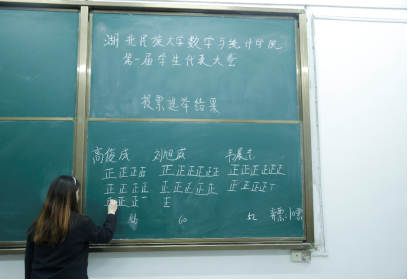 湖北民族大学数学与统计学院
第一届学生代表大会
投票选举结果
高俊成 刘旭
正正正正 正正正正正 正正正正正
正正正正 正正正正正 正正正正
正正正 正
60 52 弃票:10票